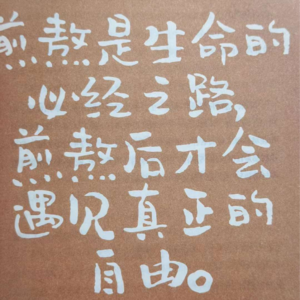 煎熬是生命的
必经之路,
煎熬后才会
遇见真正的
自由。